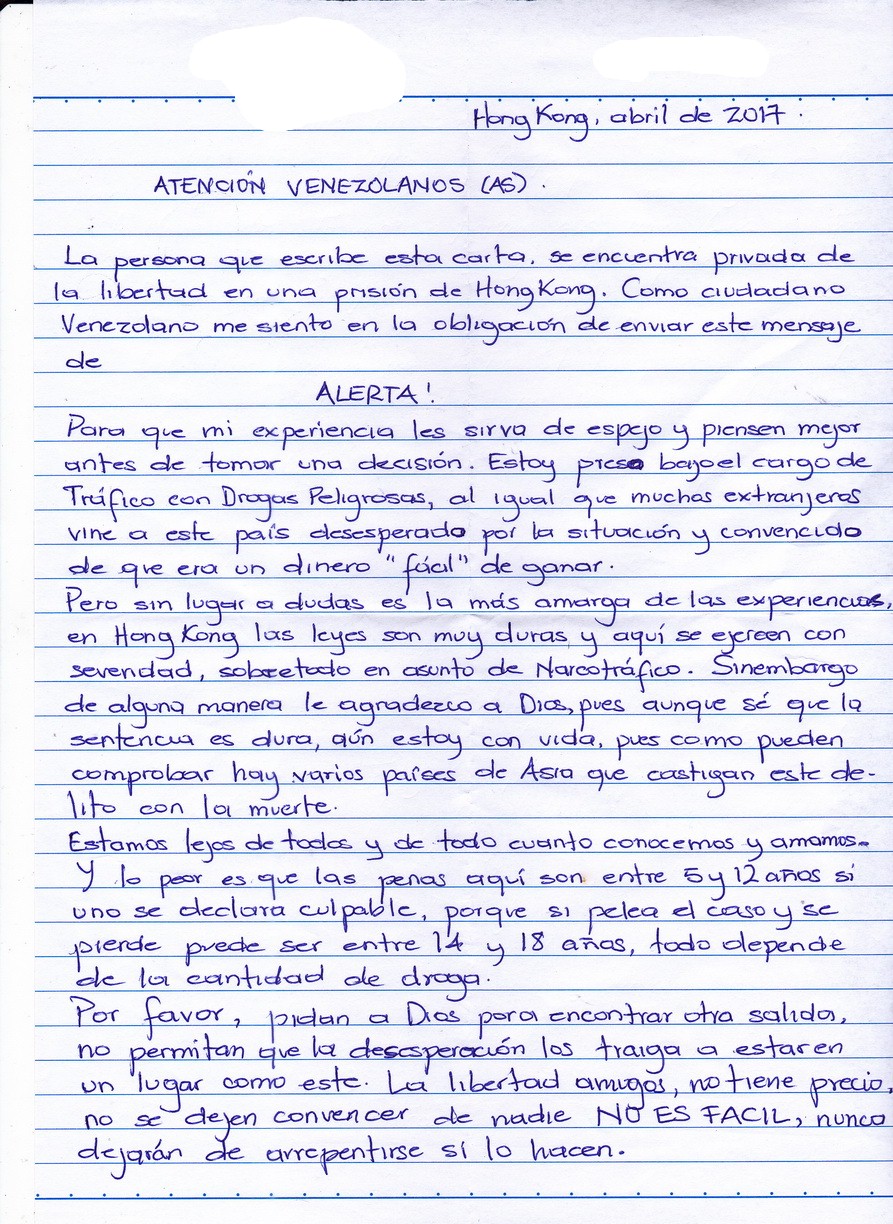 Hong Kong, abril de 2017.
ATENCIÓN VENEZOLANOS (AS).
La persona que escribe esta carta, se encuentra privada de
la libertad en una prisión de Hong Kong. Como ciudadano
Venezolano me siento en la obligación de enviar este mensaje
de
ALERTA!
Para que mi experiencia les sirva de espejo y piensen mejor
antes de tomar una decisión. Estoy preso bajo el cargo de
Tráfico con Drogas Peligrosas, al igual que muchos extranjeros
vine a este país desesperado por la situación y convencido
de que era un dinero "fácil" de ganar.
Pero sin lugar a dudas es la más amarga de las experiencias,
en Hong Kong las leyes son muy duras y aquí se ejercen con
severidad, sobretodo en asunto de Narcotráfico. Sinembargo
de alguna manera le agradezco a Dios, pues aunque sé que la
sentencia es dura, aún estoy con vida, pues como pueden
comprobar hay varios países de Asia que castigan este de-
lito con la muerte.
Estamos lejos de todos y de todo cuanto conocemos y amamos.
Y lo peor es que las penas aquí son entre 5 y 12 años si
uno se declara culpable, porque si pelea el caso y se
pierde puede ser entre 14 y 18 años, todo depende
de la cantidad de droga.
Por favor, pidan a Dios para encontrar otra salida,
no permitan que la desesperación los traiga a estar en
un lugar como este. La libertad amigos, no tiene precio,
no se dejen convencer de nadie NO ES FACIL, nunca
dejarán de arrepentirse si lo hacen.